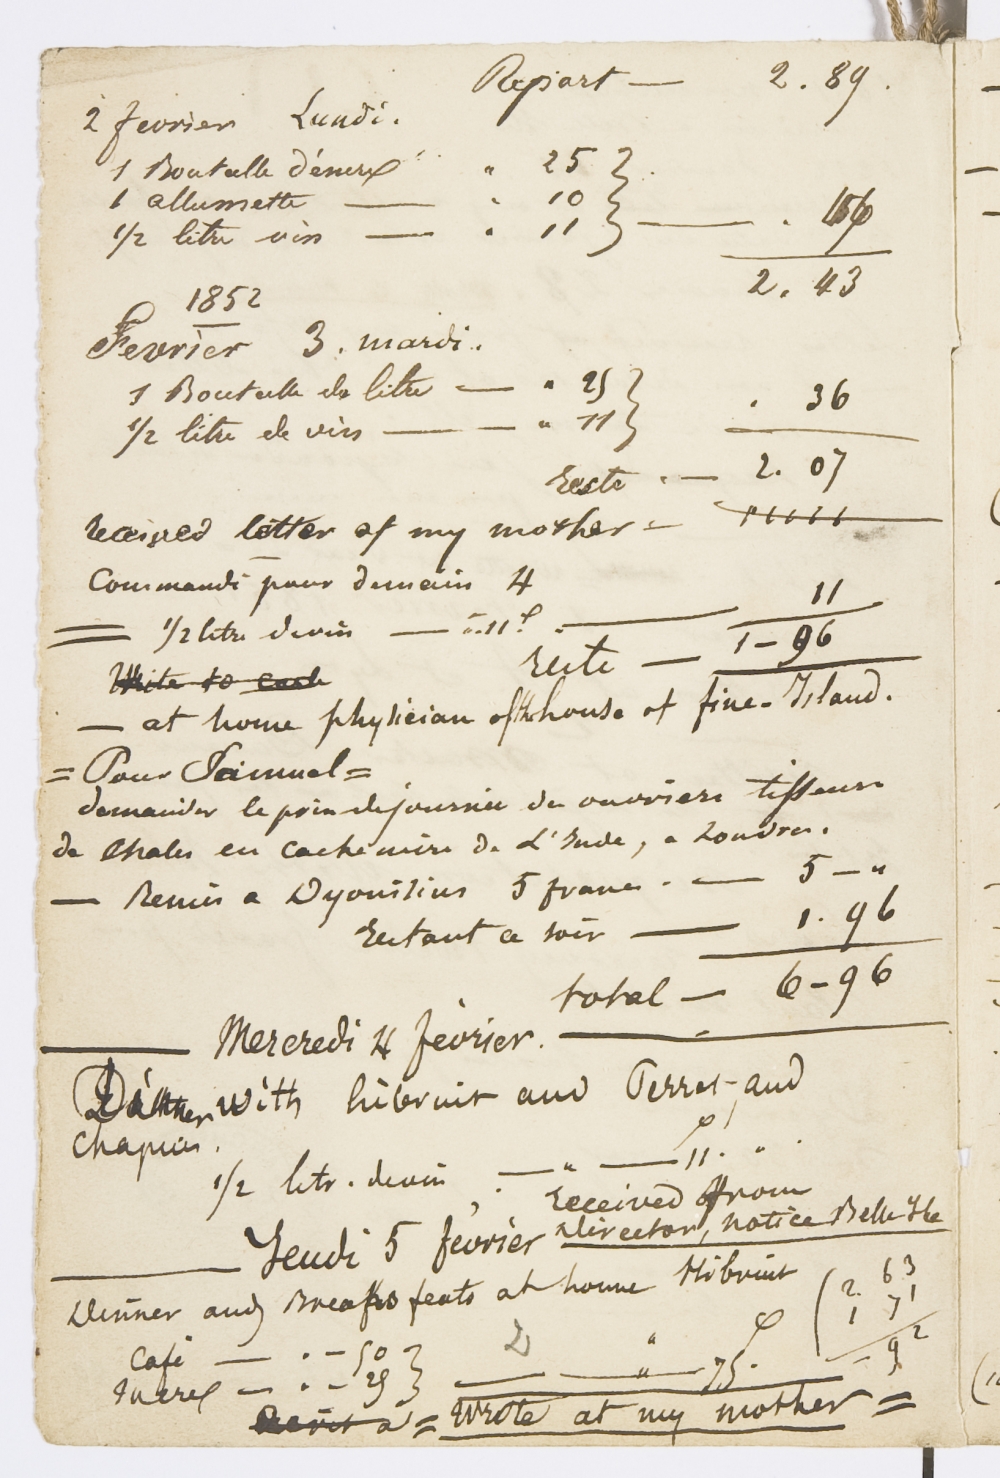 Report — 2. 89.
2 fevrier Lundi.
1 Boutelle d'encre " 25
1 allumette — " 10
1/2 litre vin — " 11 — . 46
2. 43
1852
Fevrier 3. mardi.
1 Boutelle de litre — " 25 . 36
1/2 litre de vin — — " 11
reste . — 2. 07
received letter of my mother —
Commandé pour demain 4
1/2 litre de vin — ".11c. — 11
Write to
reste — 1 - 96
— at home physician of the house of fine-Island.
= Pour Samuel =
demander le prix de journée de ouvriers tisseurs
de Chales en cachemire de L'Inde, a Londres.
— Remis a Dyonisius 5 francs . — 5 — "
restant ce soir — 1. 96
total — 6 - 96
Mercredi 4 février. —
Dinner with hibruit and Perret, and
Chapuis.
1/2 litr. de vin , — " — 11. "
received from
Jeudi 5 février Director, notice Belle-Ile
Dinner and Breakfeats at home Hibruit
2. 63
1 71
92
Café — . - 50
Sucre — " - 25 — " — 75.
a = Wrote at my mother =